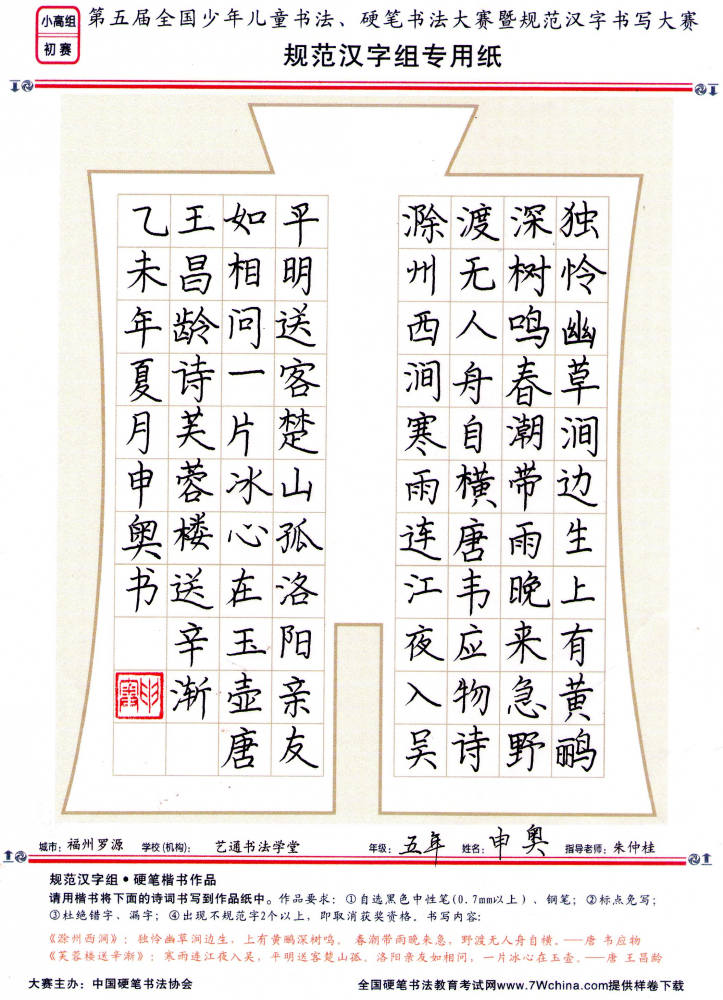 小高组
初赛
第五届全国少年儿童书法、硬笔书法大赛暨规范汉字书写大赛
规范汉字组专用纸
独怜幽草涧边生上有黄鹂
深树鸣春潮带雨晚来急野
渡无人舟自横唐韦应物诗
滁州西涧寒雨连江夜入吴
平明送客楚山孤洛阳亲友
如相问一片冰心在玉壶唐
王昌龄诗芙蓉楼送辛渐
乙未年夏月申奥书
城市：福州罗源 学校(机构)：艺通书法学堂 年级：五年 姓名：申奥 指导老师：朱仲桂
规范汉字组•硬笔楷书作品
请用楷书将下面的诗词书写到作品纸中。作品要求：①自选黑色中性笔(0.7mm以上)、钢笔；②标点免写；
③杜绝错字、漏字；④出现不规范字2个以上，即取消获奖资格。书写内容：
《滁州西涧》：独怜幽草涧边生，上有黄鹂深树鸣。春潮带雨晚来急，野渡无人舟自横。——唐 韦应物
《芙蓉楼送辛渐》：寒雨连江夜入吴，平明送客楚山孤。洛阳亲友如相问，一片冰心在玉壶。——唐 王昌龄
大赛主办：中国硬笔书法协会 全国硬笔书法教育考试网www.7Wchina.com提供样卷下载